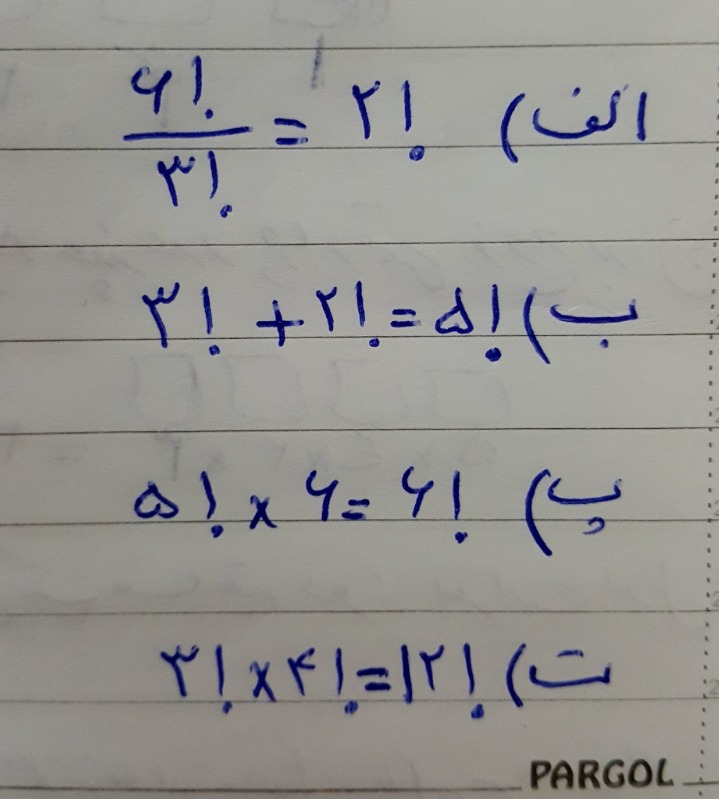 الف) ۶!/۳! = ۲!
ب) ۳! + ۲! = ۵!
پ) ۵! × ۶ = ۶!
ت) ۳! × ۴! = ۱۲!
PARGOL